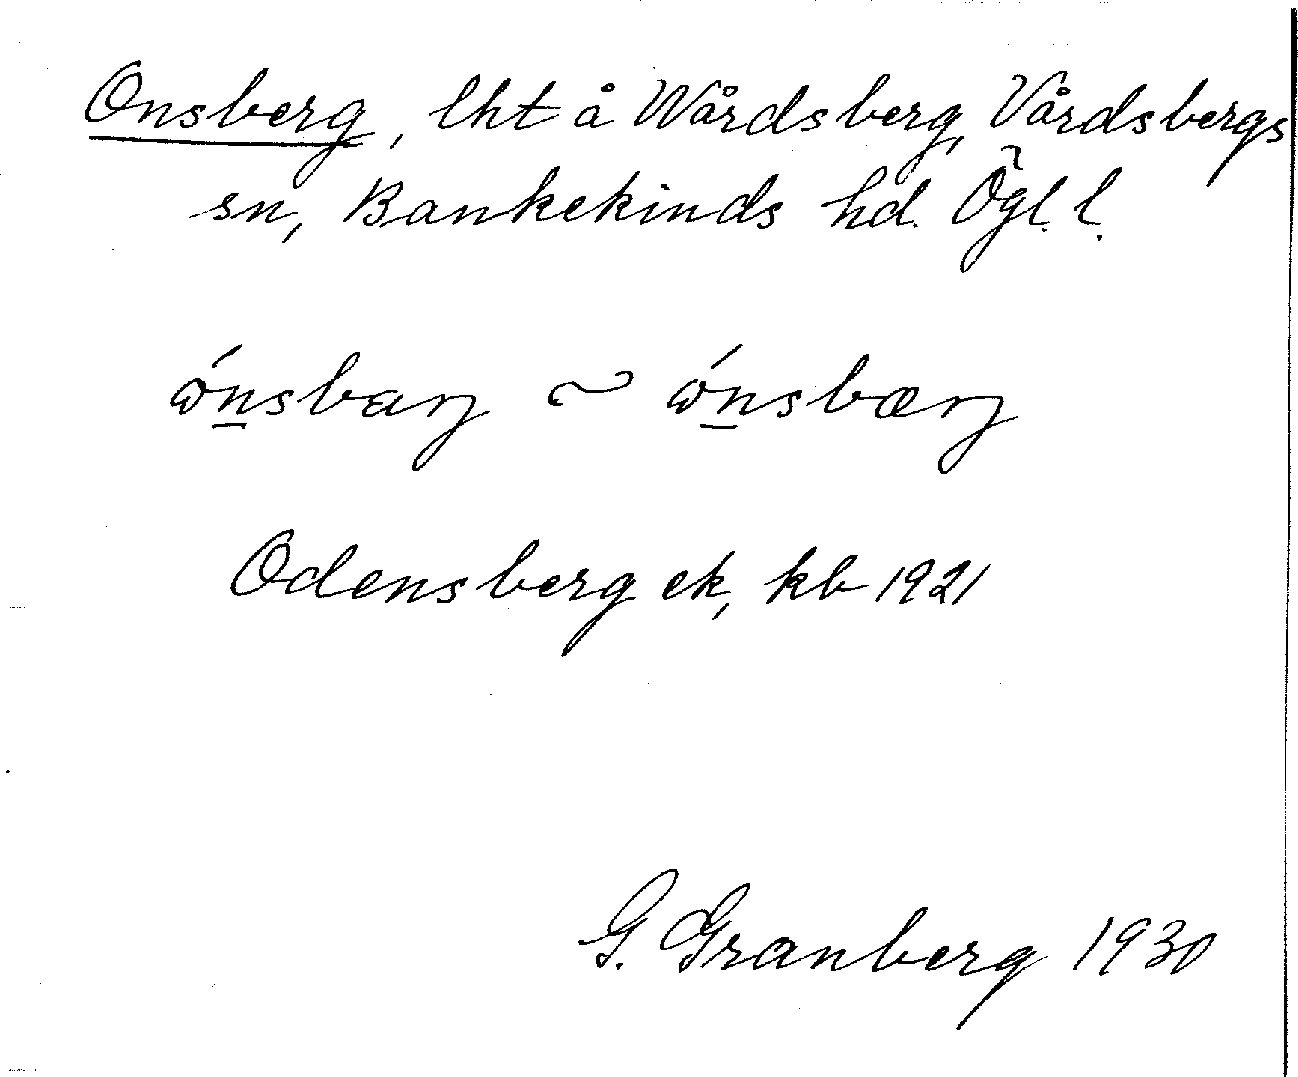 Onsberg, lht å Wårdsberg, Vårdsbergs
sn, Bankekinds hd. Ögl. l.
ón̲sbarj ~ ón̲sbærj
Odensberg ek, kb 1921
G. Granberg 1930